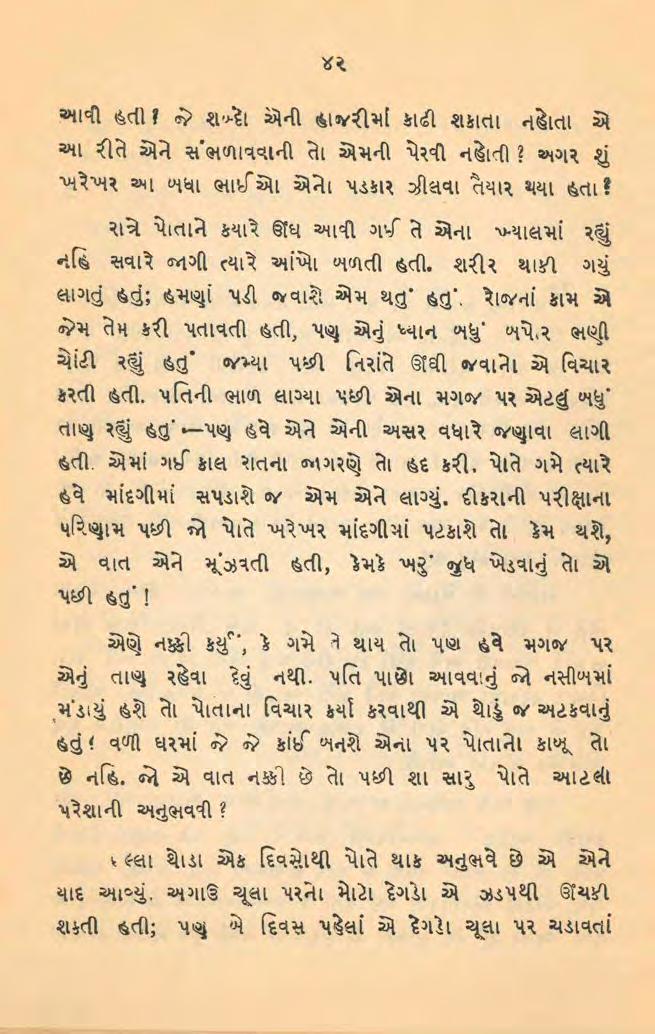 ૪૨
આવી હતી? જે શબ્દો એની હાજરીમાં કાઢી શકાતા નહોતા એ
આ રીતે એને સંભળાવવાની તો એમની પેરવી નહોતી? અગર શું
ખરેખર આ બધા ભાઈઓ એનો પડકાર ઝીલવા તૈયાર થયા હતા?
રાત્રે પોતાને કયારે ઊંઘ આવી ગઈ તે એના ખ્યાલમાં રહ્યું
નહિ સવારે જાગી ત્યારે આંખો બળતી હતી. શરીર થાકી ગયું
લાગતું હતું; હમણાં પડી જવાશે એમ થતું હતું. રોજનાં કામ એ
જેમ તેમ કરી પતાવતી હતી, પણ એનું ધ્યાન બધું બપોર ભણી
ચોંટી રહ્યું હતું જમ્યા પછી નિરાંતે ઊંઘી જવાનો એ વિચાર
કરતી હતી. પતિની ભાળ લાગ્યા પછી એના મગજ પર એટલું બધું
તાણ રહ્યું હતું—પણ હવે એને એની અસર વધારે જણાવા લાગી
હતી. એમાં ગઈ કાલ રાતના જાગરણે તો હદ કરી. પોતે ગમે ત્યારે
હવે માંદગીમાં સપડાશે જ એમ એને લાગ્યું. દીકરાની પરીક્ષાના
પરિણામ પછી જો પોતે ખરેખર માંદગીમાં પટકાશે તો કેમ થશે,
એ વાત એને મૂંઝવતી હતી, કેમકે ખરું જુધ ખેડવાનું તો એ
પછી હતું!
એણે નક્કી કર્યું, કે ગમે તે થાય તો પણ હવે મગજ પર
એનું તાણ રહેવા દેવું નથી. પતિ પાછો આવવાનું જો નસીબમાં
મંડાયું હશે તો પોતાના વિચાર કર્યા કરવાથી એ થોડું જ અટકવાનું
હતું! વળી ઘરમાં જે જે કાંઈ બનશે એના પર પોતાનો કાબૂ તો
છે નહિ. જો એ વાત નક્કી છે તો પછી શા સારુ પોતે આટલી
પરેશાની અનુભવવી?
લ્લા થોડા એક દિવસોથી પોતે થાક અનુભવે છે એ એને
યાદ આવ્યું. અગાઉ ચૂલા પરનો મોટો દેગડો એ ઝડપથી ઊંચકી
શકતી હતી; પણ બે દિવસ પહેલાં એ દેગડો ચૂલા પર ચડાવતાં